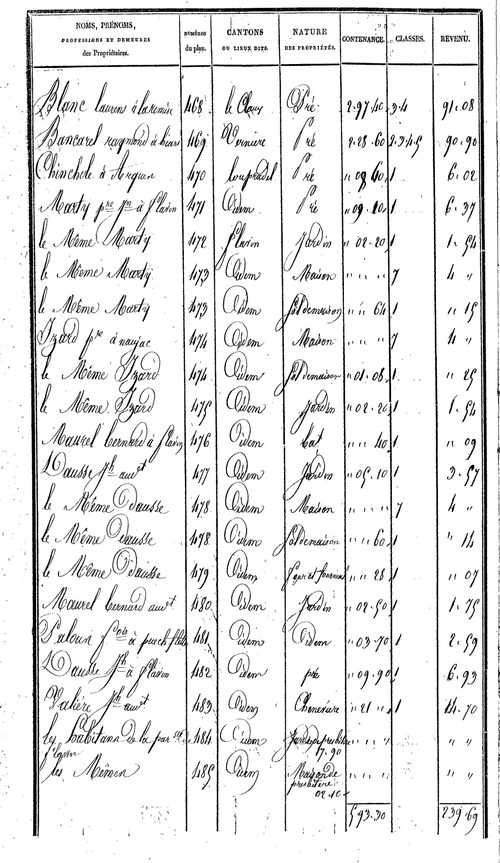 NOMS, PRÉNOMS, PROFESSIONS ET DEMEURES des Propriétaires. NUMÉROS du plan. CANTONS OU LIEUX DITS. NATURE DES PROPRIÉTÉS. CONTENANCE. CLASSES. REVENU.
Blanc laurens à 468 le Claux Pré 2. 97. 40 3. 4 91. 08
Bancarel raymond à 469 Verniere Pré 2. 28. 60 2. 3. 4. 5 90. 90
Chinchole à 470 loupradel Pré " 08 60 1 6. 02
Marty à flavin 471 Idem Pré " 09. 10 1 6. 37
le Même Marty 472 flavin Jardin " 02. 20 1 1. 54
le Même Marty 473 Idem Maison " " " 7 4 "
le Même Marty 473 Idem Sol de maison " " 64 1 " 15
Izard pre à naujac 474 Idem Maison " " " 7 4 "
le Même Izard 474 Idem Sol de maison " 01. 08 1 " 25
le Même Izard 475 Idem Jardin " 02. 20 1 1. 54
Maurel bernard à flavin 476 Idem bât " " 40 1 " 09
Dausse jh audt 477 Idem Jardin " 05. 10 1 3. 57
le Même Dausse 478 Idem Maison " " " 7 4 "
le Même Dausse 478 Idem Sol de maison " " 60 1 " 14
le Même Dausse 479 Idem et fournial " " 28 1 " 07
Maurel bernard audt 480 Idem Jardin " 02. 50 1 1. 75
Paloun fcois à puech 481 Idem Idem " 03. 70 1 2. 59
Dausse jh à flavin 482 Idem pré " 09. 90 1 6. 93
Valière jh audt 483 Idem Cheneviere " 21 " 1 14. 70
les habitans de la par sse de flavin 484 Idem Jardin presbitere 17. 90 " " " " "
les Mêmes 485 Idem Maison de presbitere 02. 10 " " " " "
593. 30 239. 69